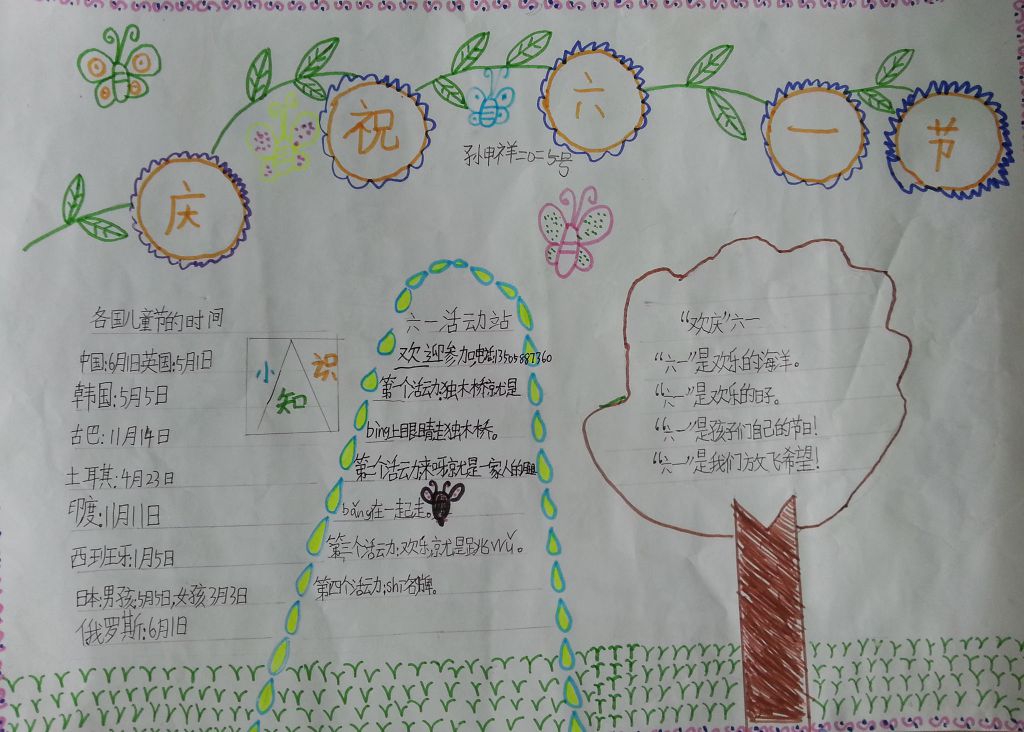 庆祝六一节
孙申祥二0二5号
各国儿童节的时间
中国:6月1日英国:5月1日
韩国:5月5日
古巴:11月14日
土耳其:4月23日
印度:11月11日
西班王乐:1月5日
日本:男孩:5月5日,女孩3月3日
俄罗斯:6月1日
小知识
六一活动站
欢迎参加电话13505887360
第一个活动:独木桥就是
bìng上眼睛走独木桥。
第二个活动来呀就是一家人的腿
bǎng在一起走。
第三个活动:欢乐就是跳wǔ。
第四个活动:shi名牌。
“欢庆”六一
“六一”是欢乐的海洋。
“六一”是欢乐的日子。
“六一”是孩子们自己的节日!
“六一”是我们放飞希望!